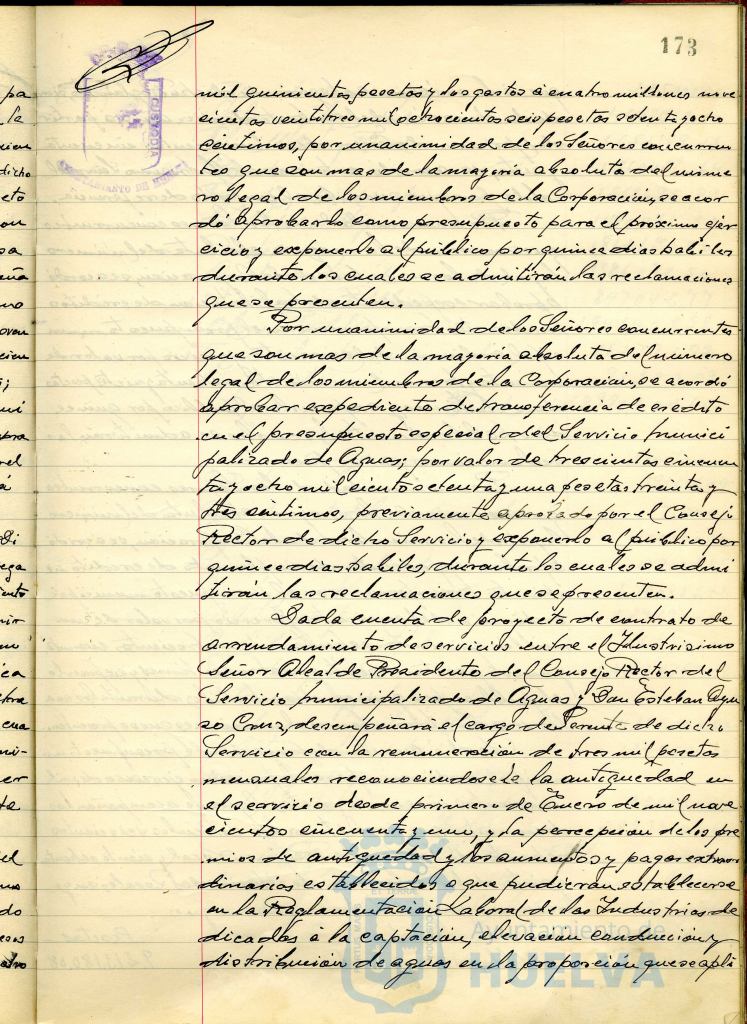 173
mil quinientas pesetas y los gastos a cuatro millones nove
cientas veintitres mil ochocientas seis pesetas setenta y ocho
centimos, por unanimidad de los Señores concurren
tes que son mas de la mayoria absoluta del nume
ro legal de los miembros de la Corporación, se acor
dó aprobarlo como presupuesto para el próximo ejer
cicio y exponerlo al público por quince dias habiles
durante los cuales se admitirán las reclamaciones
que se presenten.
Por unanimidad de los Señores concurrentes
que son mas de la mayoria absoluta del número
legal de los miembros de la Corporación, se acordó
aprobar expediente de transferencia de crédito
en el presupuesto especial del Servicio Munici
palizado de Aguas; por valor de trescientas cincuen
ta y ocho mil ciento setenta y una pesetas treinta y
tres céntimos, previamente aprobado por el Consejo
Rector de dicho Servicio y exponerlo al público por
quince dias habiles, durante los cuales se admi
tirán las reclamaciones que se presenten.
Dada cuenta de proyecto de contrato de
arrendamiento de servicios entre el Ilustrisimo
Señor Alcalde Presidente del Consejo Rector del
Servicio Municipalizado de Aguas y Don Esteban Ayu
so Cruz, desempeñará el cargo de Gerente de dicho
Servicio con la remuneración de tres mil pesetas
mensuales reconociendosele la antiguedad en
el servicio desde primero de Enero de mil nove
cientos cincuenta y uno, y la percepción de los pre
mios de antiguedad y los aumentos y pagas extraor
dinarias establecidos o que pudieran establecerse
en la Reglamentación Laboral de las Industrias de
dicadas á la captación, elevación conducción y
distribución de aguas en la proporción que se apli
CUSTODIA
AYUNTAMIENTO DE HUELVA
Ayuntamiento de
HUELVA
pa
la
dicho
eto
sa
no
el
á
Di
ega
nir
ica
cua
ni-
er
te
el
do